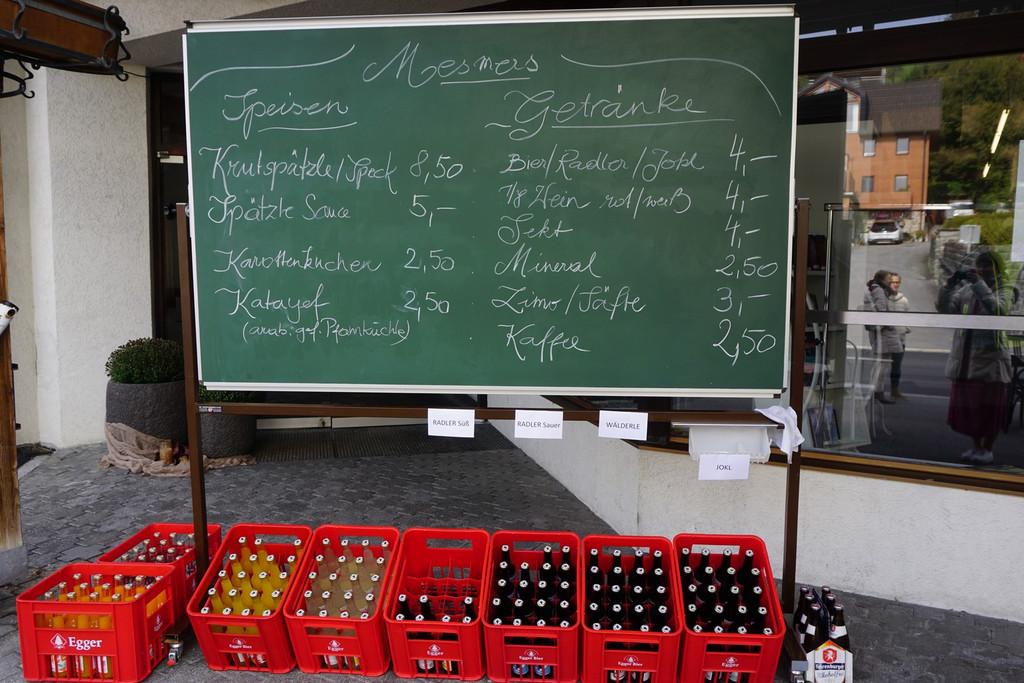 Mesmers
Speisen
Krutspätzle/Speck 8,50
Spätzle Sauce 5,-
Karottenkuchen 2,50
Katayef 2,50
(arab. gef. Pfannküchle)
Getränke
Bier/Radler/Jokl 4,-
1/8 Wein rot/weiß 4,-
Sekt 4,-
Mineral 2,50
Limo/Säfte 3,-
Kaffee 2,50
RADLER Süß
RADLER Sauer
WÄLDERLE
JOKL
Egger
Egger
Egger
Egger
Egger Bier
Egger Bier
Egger